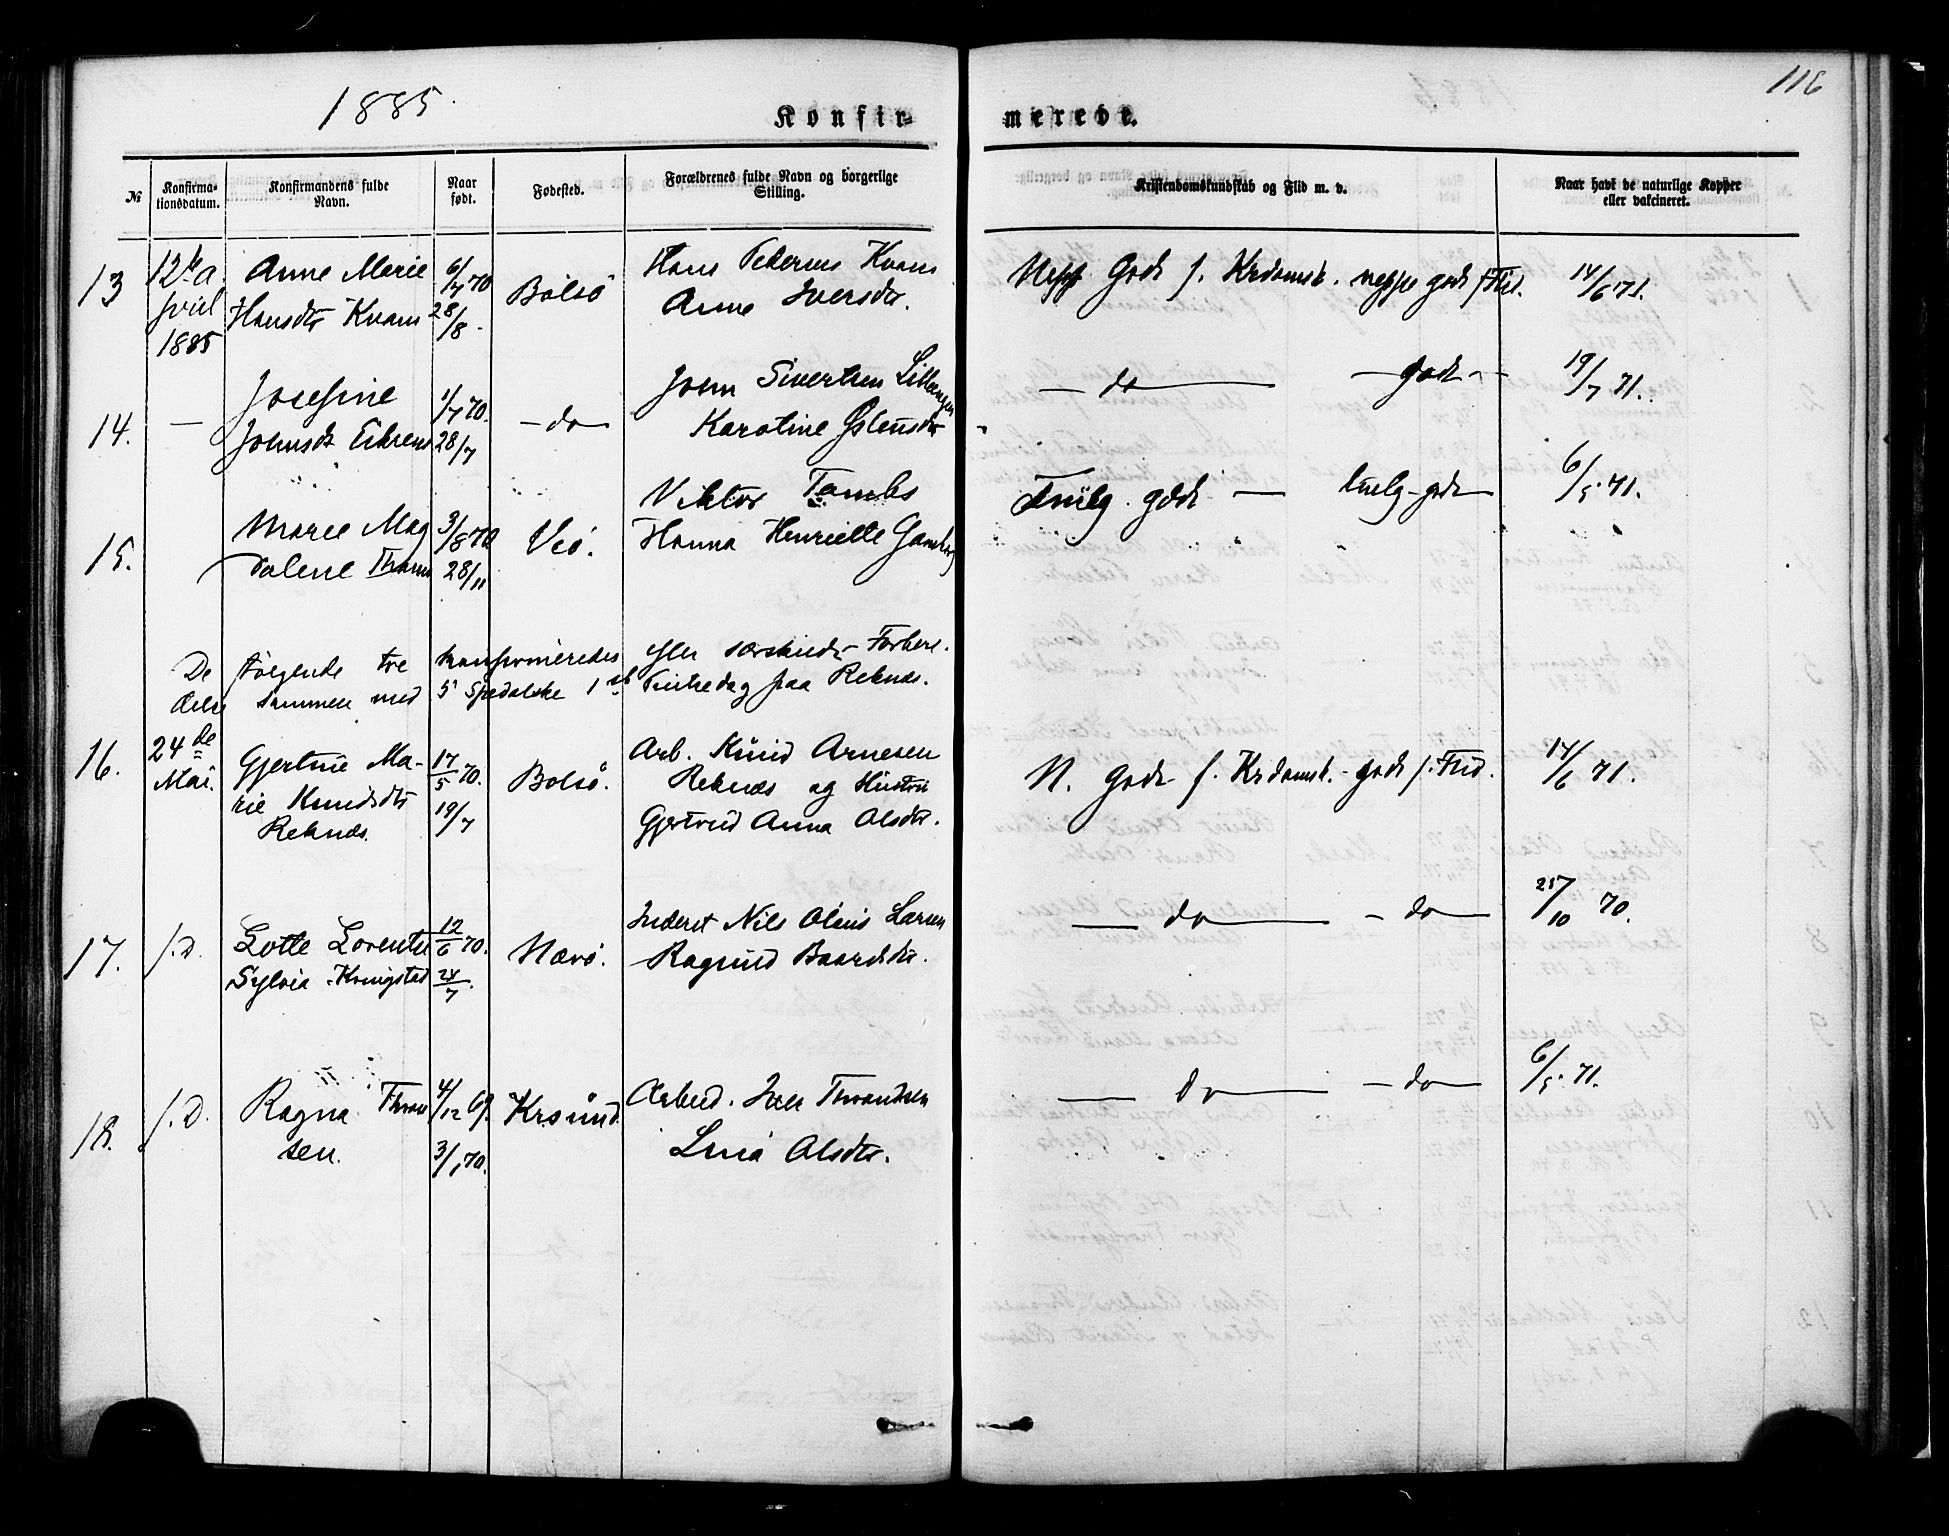 1885.
116
Konfir-
merede.
№
Konfirma-
tionsdatum.
Konfirmandens fulde
Navn.
Naar
født.
Fødested.
Forældrenes fulde Navn og borgerlige
Stilling.
Kristendomskundskab og Flid m. v.
Naar havt de naturlige Kopper
eller vakcineret.
13
12te A
pril
1885
Anne Marie
Hansdtr Kvam
6/7 70
28/8.
Bolsö
Hans Pedersen Kvam
Anne Iversdtr.
Nepp. Godt f. Krdomsk. neppe godt f Flid.
14/6 71.
14.
—
Josefine
Johnsdtr
1/7 70.
28/7
— do —
John Sivertsen
Karoline Østensdtr
— do — — godt —
19/7 71.
15.
Marie Mag
dalene
3/8 70
28/11
Veö.
Viktor
Hanna Henriette
Tmlg. godt — tmlg. godt
6/5 71.
De følgende tre konfirmeredes efter særskilt Forbere.
delse sammen med 5 Spedalske 1ste Pintsedag paa Reknes.
16.
24de
Mai.
Gjertine Ma-
rie Knudsdtr
Reknæs.
17/5 70.
19/7
Bolsö.
Arb. Knud Arnesen
Reknæs og Hustru
Gjertrud Anna Olsdtr.
N. Godt f. Krdomsk. - godt f. Flid.
14/6 71.
17.
s. D.
Lotte Lorentse
Sylvia Kringstad
12/6 70.
24/7.
Nærö.
Inderst Nils Olaus Larsen
Ragnild Baardsdtr.
— do — — do —
25/10 70.
18.
s. D.
Ragna Thran
sen.
4/12 69.
3/1 70.
Krsund.
Arbeid. Iver Thrandsen
Lina Olsdtr.
— do — — do —
6/5 71.